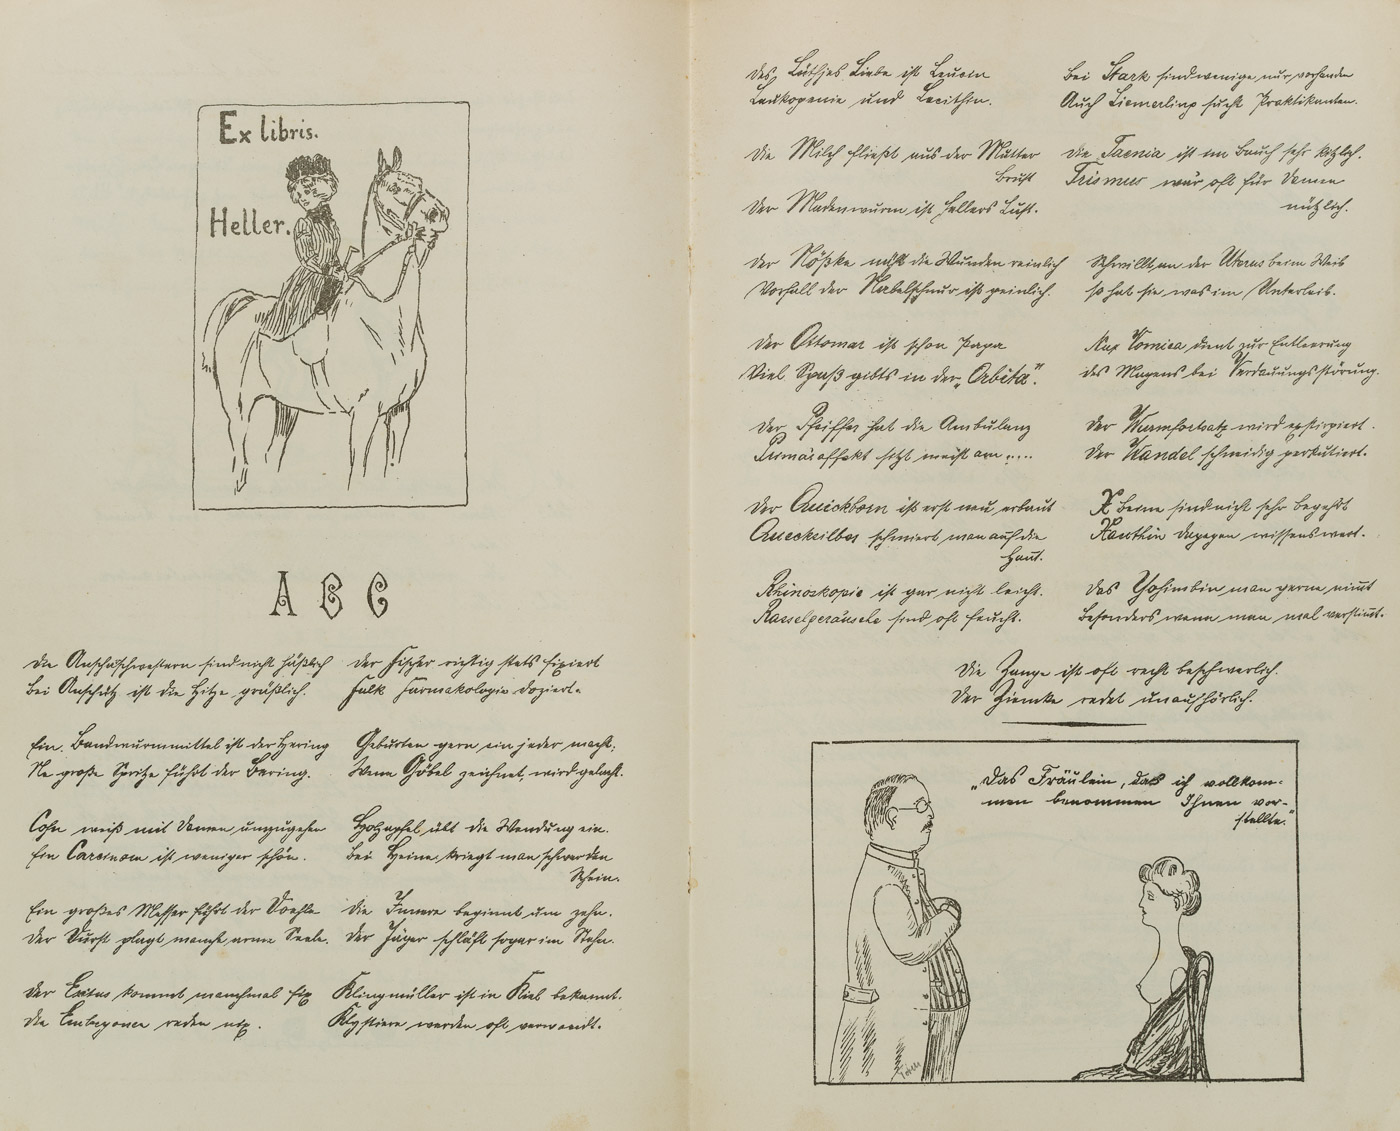 Ex libris.
Heller.
A B C
Die Anscharschwestern sind nicht häßlich
Bei Anschütz ist die Hitze gräßlich.
Ein Bandwurmmittel ist der Hering
Ne große Spritze führt der Bering.
Cohn weiß mit Damen umzugehen
Ein Carcinom ist weniger schön.
Ein großes Messer führt der Doehle
Der Durst plagt manche arme Seele.
Der Exitus kommt manchmal fix
Die Embryonen reden nix.
Der Fischer richtig stets fixiert
Falk Farmakologie doziert.
Geburten gern ein jeder macht;
Wenn Göbel zeichnet, wird gelacht.
Holzapfel übt die Wendung ein.
Bei Heine kriegt man schwer den
Schein.
Die Innere beginnt um zehn.
Der Jäger schläft sogar im Stehn.
Klingmüller ist in Kiel bekannt.
Klystiere werden oft verwandt.
Des Lüthjes Liebe ist Leucin
Leukopenie und Lecithin.
Die Milch fließt aus der Mutter
Brust
Der Madenwurm ist Hellers Lust.
Der Nößke näht die Wunden reinlich
Vorfall der Nabelschnur ist peinlich.
Der Ottomar ist schon Papa
Viel Spaß gibts in der „Orbita“.
Der Pfeiffer hat die Ambulanz
Primäraffekt sitzt meist am ....
Der Quickborn ist erst neu erbaut
Quecksilber schmiert man auf die
Haut.
Rhinoskopie ist gar nicht leicht.
Rasselgeräusche sind oft feucht.
Bei Stark sind wenige nur vorhanden
Auch Siemerling sucht Praktikanten.
Die Taenia ist im Bauch sehr kitzlich.
Trismus wär oft für Damen
nützlich.
Schwillt an der Uterus beim Weib
so hat sie was im Unterleib.
Nux Vomica dient zur Entleerung
des Magens bei Verdauungsstörung.
Der Wurmfortsatz wird exstirpiert.
Der Wandel schneidig perkutiert.
X beine sind nicht sehr begehrt
Xanthin dagegen wissenswert.
Das Yohimbin man gerne nimt
besonders wenn man mal verstimt.
Die Zange ist oft recht beschwerlich.
Der Ziemke redet unaufhörlich.
„Das Fräulein, das ich vollkom-
men benommen Ihnen vor-
stellte.“